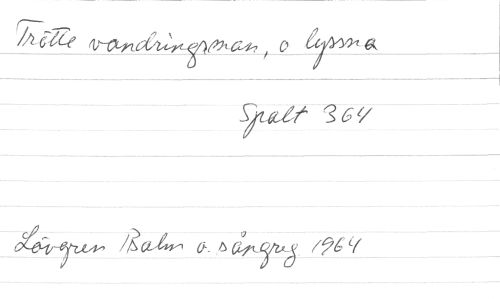 Trötte vandringsman, o lyssna
Spalt 364
Lövgren Psalm o. sångreg 1964